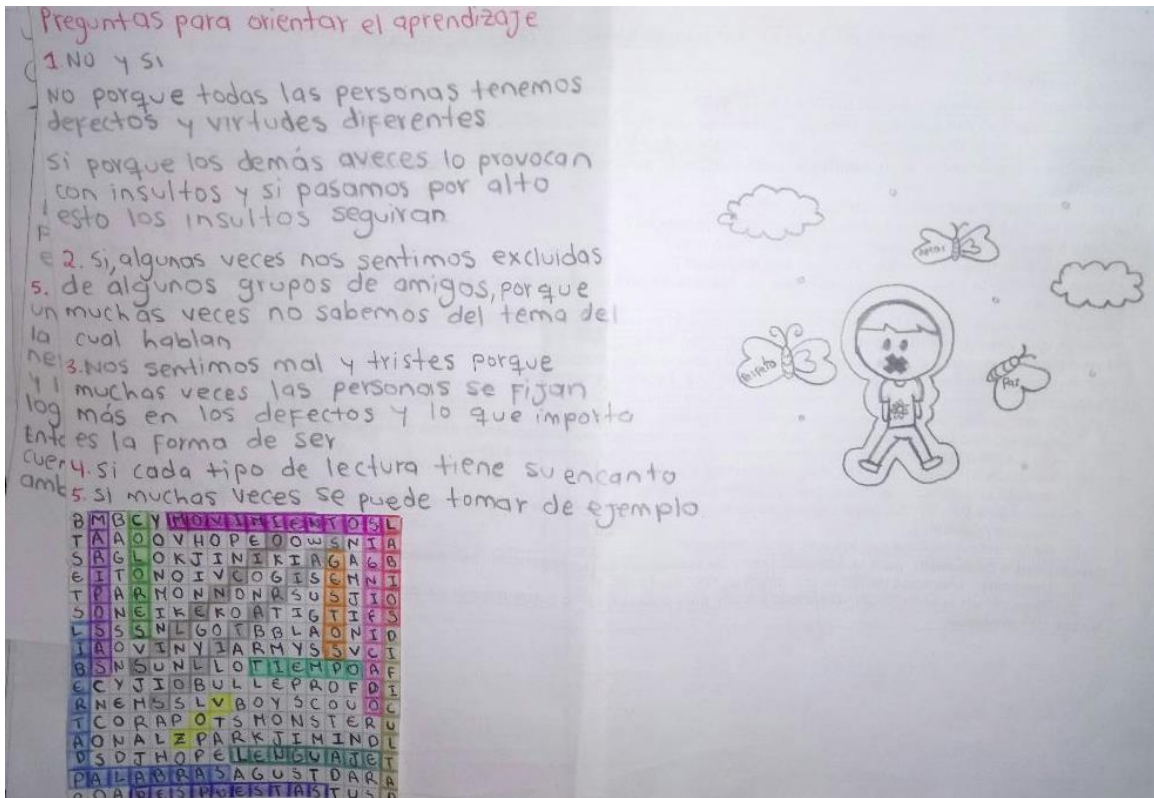 Preguntas para orientar el aprendizaje
1. NO y SI
NO porque todas las personas tenemos
defectos y virtudes diferentes
si porque los demás aveces lo provocan
con insultos y si pasamos por alto
esto los insultos seguiran
2. si, algunas veces nos sentimos excluidas
de algunos grupos de amigos, porque
muchas veces no sabemos del tema del
cual hablan
3. Nos sentimos mal y tristes porque
muchas veces las personas se fijan
más en los defectos y lo que importa
es la forma de ser
4. si cada tipo de lectura tiene su encanto
5. si muchas veces se puede tomar de ejemplo
5.
un
la
ne
y l
log
Ente
cuer
amb
B M B C Y M O V I M I E N T O S L
T A A O O V H O P E O O W S N I A
S A G L O K J I N I K I A G A G B
E I T O N O I V C O G I S E M N I
T P A R M O N N O N R S U S J I O
S O N E I K E K O A T I G T I F S
L S S S N L G O T B B L A O N I D
I A O V I N Y I A R M Y S S V C I
B S N S U N L L O T I E M P O A F
E C Y J I O B U L L E P R O F D I
R N E M S S L V B O Y S C O U O C
T C O R A P O T S M O N S T E R U
A O N A L Z P A R K J I M I N D L
D S D J H O P E L E N G U A J E T
P A L A B R A S A G U S T D A R A
D E S P U E S T A S T U S
Paz